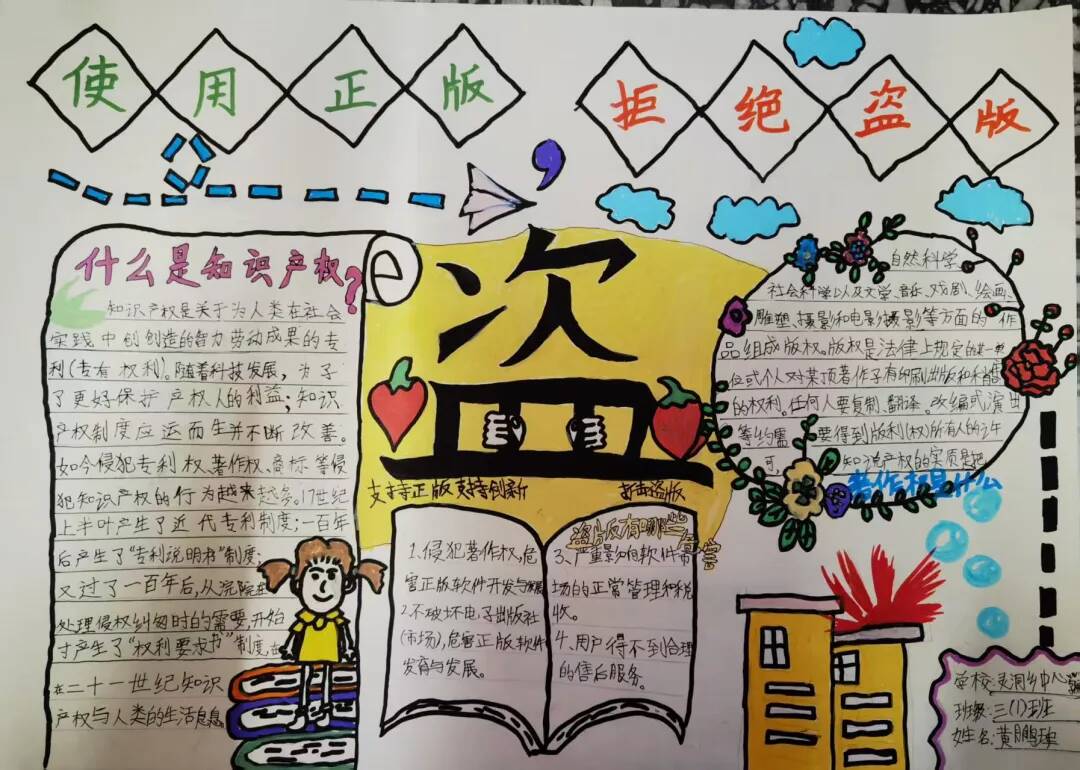 使用正版
拒绝盗版
什么是知识产权?
知识产权是关于为人类在社会
实践中创创造的智力劳动成果的专
利(专有权利)。随着科技发展,为了
了更好保护产权人的利益;知识
产权制度应运而生并不断改善。
如今侵犯专利权、著作权、商标等侵
犯知识产权的行为越来越多。17世纪
上半叶产生了近代专利制度;一百年
后产生了"专利说明书"制度;
又过了一百年后,从法院在
处理侵权纠纷时的需要,开始
才产生了"权利要求书"制度,在
在二十一世纪知识
产权与人类的生活息息
盗
支持正版 支持创新
打击盗版
盗版有哪些危害
1、侵犯著作权,危
害正版软件开发与发展
2.不破坏电子出版社
(市场),危害正版软件
发育与发展。
3、严重影向软件市
场的正常管理和税
收。
4、用户得不到合理
的售后服务。
自然科学、
社会科学以及文学、音乐、戏剧、绘画、
雕塑、摄影和电影摄影等方面的作
品组成版权。版权是法律上规定的某一单
位或个人对某顶著作子有印刷出版和销售
的权利。任何人要复制、翻译。改编或演出
等约需要得到版利(权)所有人的许
可,知识产权的实质是把
著作权是什么
学校:灵洞乡中心
班级:三(1)班
姓名:黄鹏